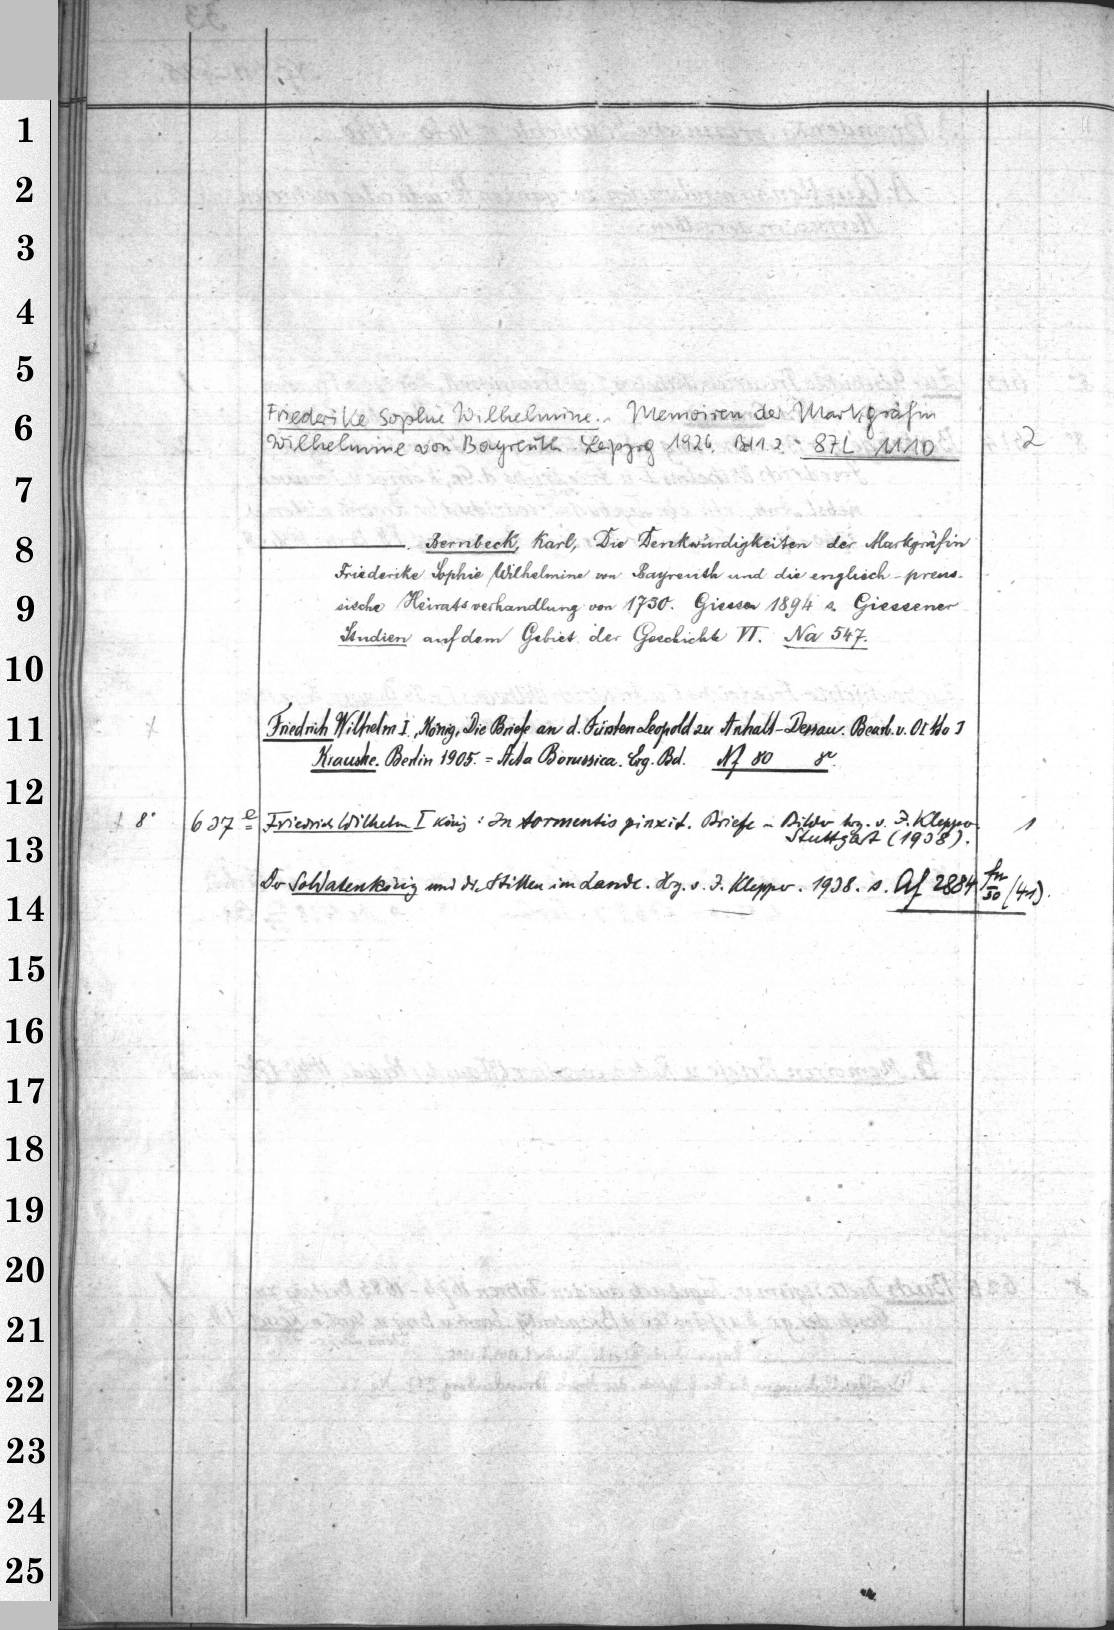 1
2
3
4
5
6
7
8
9
10
11
12
13
14
15
16
17
18
19
20
21
22
23
24
25
Friederike Sophie Wilhelmine. Memoiren der Markgräfin
Wilhelmine von Bayreuth. Leipzig 1926. Bd 1.2. 87L 1110 2
Bernbeck, Karl, Die Denkwürdigkeiten der Markgräfin
Friederike Sophie Wilhelmine von Bayreuth und die englisch-preus-
sische Heiratsverhandlung von 1730. Giessen 1894 s. Giessener
Studien auf dem Gebiet der Geschichte VI. Na 547.
Friedrich Wilhelm I., König, Die Briefe an d. Fürsten Leopold zu Anhalt-Dessau. Bearb. v. Otto
Krauske. Berlin 1905. = Acta Borussica. Erg. Bd. Nf 80 8°
8° 637 e Friedrich Wilhelm I König: In tormentis pinxit. Briefe u. Bilder hrg. v. J. Klepper 1
Stuttgart (1938).
Der Soldatenkönig und die Stillen im Lande. Hrg. v. J. Klepper. 1938. s. Af 2884 50 (41).